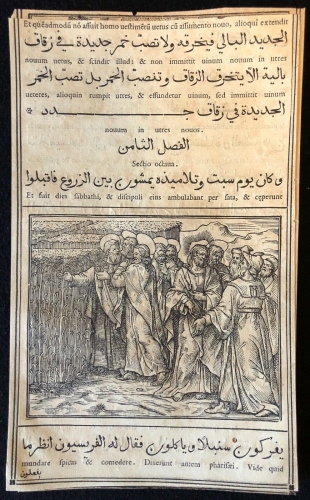 Et quẽadmodũ nõ assuit homo uestimẽtũ uetus cũ assumento nouo, alioqui extendit
الجديد البالي فيخرقه ولا تصب خمر جديدة في زقاق
nouum uetus, & scindit illud: & non immittit uinum nouum in utres
بالية الا تتخرق الزقاق وتنصب الخمر بل تصب الخمر
ueteres, alioquin rumpit utres, & effundetur uinum, sed immittit uinum
الجديدة في زقاق جدد *
nouum in utres nouos.
الفصل الثامن
Sectio octaua.
وكان يوم سبت وتلاميذه يمشون بين الزروع فاقبلوا
Et fuit dies sabbathi, & discipuli eius ambulabant per sata, & cęperunt
يفركون سنبلا وياكلون فقال له الفريسيون انظر ما
mundare spicas & comedere. Dixerunt autem pharisæi. Vide quid
يفعلون